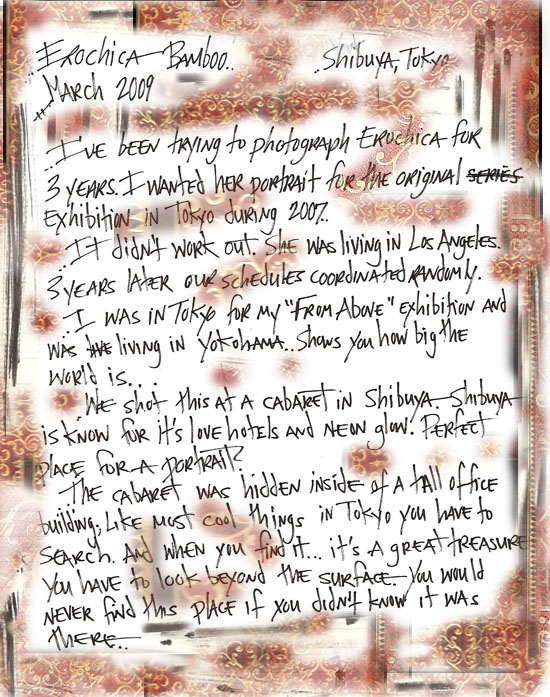 Erochica Bamboo.. ..Shibuya, Tokyo
March 2009
..I've been trying to photograph Erochica for
3 years. I wanted her portrait for the original series
Exhibition in Tokyo during 2007..
..It didn't work out. She was living in Los Angeles.
3 years later our schedules coordinated randomly.
..I was in Tokyo for my "From Above" exhibition and
was the living in Yokohama.. Shows you how big the
world is...
..We shot this at a cabaret in Shibuya. Shibuya
is know for it's love hotels and neon glow. Perfect
place for a portrait?
The cabaret was hidden inside of a tall office
building, like most cool things in Tokyo you have to
search. And when you find it... it's a great treasure
you have to look beyond the surface. You would
never find this place if you didn't know it was
there..